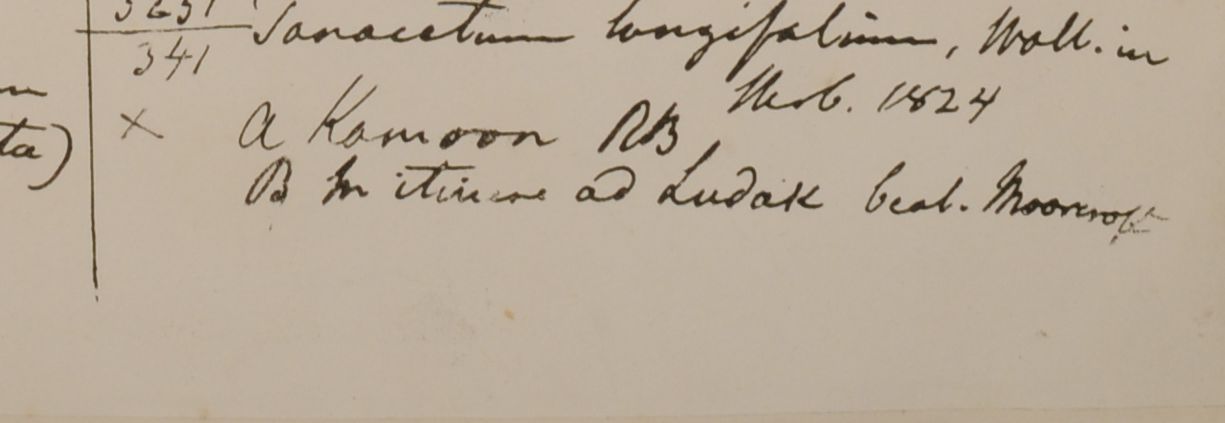 Tanacetum longifolium, Wall. in
341
Herb. 1824
ta)
× a Kamoon RB
B In itinere ad Ludak beat. Moorcroft